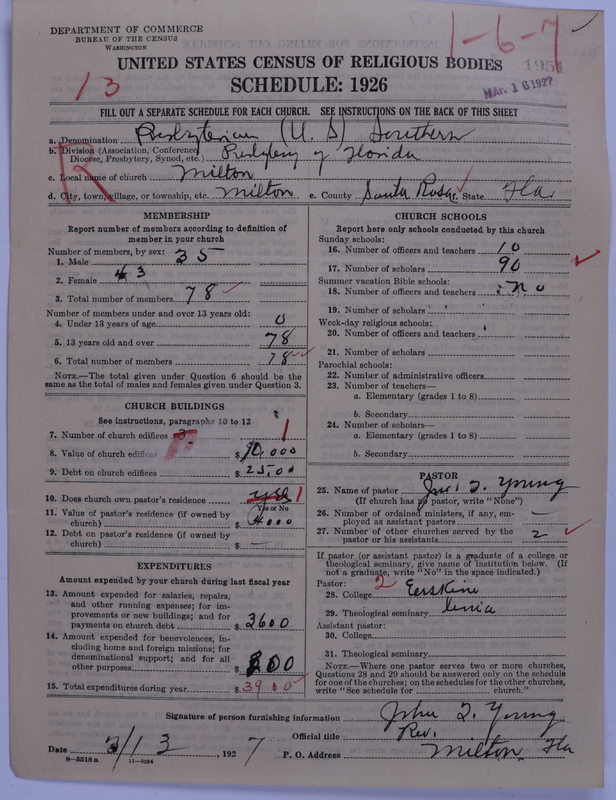 DEPARTMENT OF COMMERCE
BUREAU OF THE CENSUS
WASHINGTON
1-6-7
13
UNITED STATES CENSUS OF RELIGIOUS BODIES
1951
SCHEDULE: 1926
MAR 16 1927
FILL OUT A SEPARATE SCHEDULE FOR EACH CHURCH. SEE INSTRUCTIONS ON THE BACK OF THIS SHEET
R
a. Denomination Presbyterian (U.S) Southern
b. Division (Association, Conference, Diocese, Presbytery, Synod, etc.) Presbytery of Florida
c. Local name of church Milton
d. City, town, village, or township, etc. Milton e. County Santa Rosa f. State Fla
MEMBERSHIP
Report number of members according to definition of
member in your church
Number of members, by sex:
1. Male 35
2. Female 43
3. Total number of members 78
Number of members under and over 13 years old:
4. Under 13 years of age 0
5. 13 years old and over 78
6. Total number of members 78
NOTE.—The total given under Question 6 should be the
same as the total of males and females given under Question 3.
CHURCH BUILDINGS
See instructions, paragraphs 10 to 12
7. Number of church edifices 1
8. Value of church edifices $ 10,000
9. Debt on church edifices $ 2500
10. Does church own pastor's residence yes 1
Yes or No
11. Value of pastor's residence (if owned by
church) $ 4000
12. Debt on pastor's residence (if owned by
church) $ —
EXPENDITURES
Amount expended by your church during last fiscal year
13. Amount expended for salaries, repairs,
and other running expenses; for im-
provements or new buildings; and for
payments on church debt $ 3600
14. Amount expended for benevolences, in-
cluding home and foreign missions; for
denominational support; and for all
other purposes $ 300
15. Total expenditures during year $ 3900
CHURCH SCHOOLS
Report here only schools conducted by this church
Sunday schools:
16. Number of officers and teachers 10
17. Number of scholars 90
Summer vacation Bible schools:
18. Number of officers and teachers no
19. Number of scholars
Week-day religious schools:
20. Number of officers and teachers
21. Number of scholars
Parochial schools:
22. Number of administrative officers
23. Number of teachers—
a. Elementary (grades 1 to 8)
b. Secondary
24. Number of scholars—
a. Elementary (grades 1 to 8)
b. Secondary
PASTOR
25. Name of pastor Jno. T. Young
(If church has no pastor, write "None")
26. Number of ordained ministers, if any, em-
ployed as assistant pastors —
27. Number of other churches served by the
pastor or his assistants 2
If pastor (or assistant pastor) is a graduate of a college or
theological seminary, give name of institution below. (If
not a graduate, write "No" in the space indicated.)
Pastor: 2
28. College Erskine
29. Theological seminary Xenia
Assistant pastor:
30. College
31. Theological seminary
NOTE.—Where one pastor serves two or more churches,
Questions 28 and 29 should be answered only on the schedule
for one of the churches; on the schedules for the other churches,
write "See schedule for church."
Signature of person furnishing information John T. Young
Official title Rev.
Date 3/13, 1927 P. O. Address Milton, Fla
8-5318a 11-9054